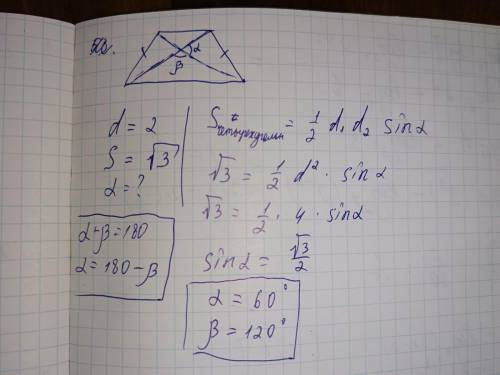 α
β
d = 2
S = √3
α = ?
α + β = 180
α = 180 - β
S четырехугольн = 1/2 d₁ d₂ sin α
√3 = 1/2 d² · sin α
√3 = 1/2 · 4 · sin α
sin α = √3/2
α = 60°
β = 120°